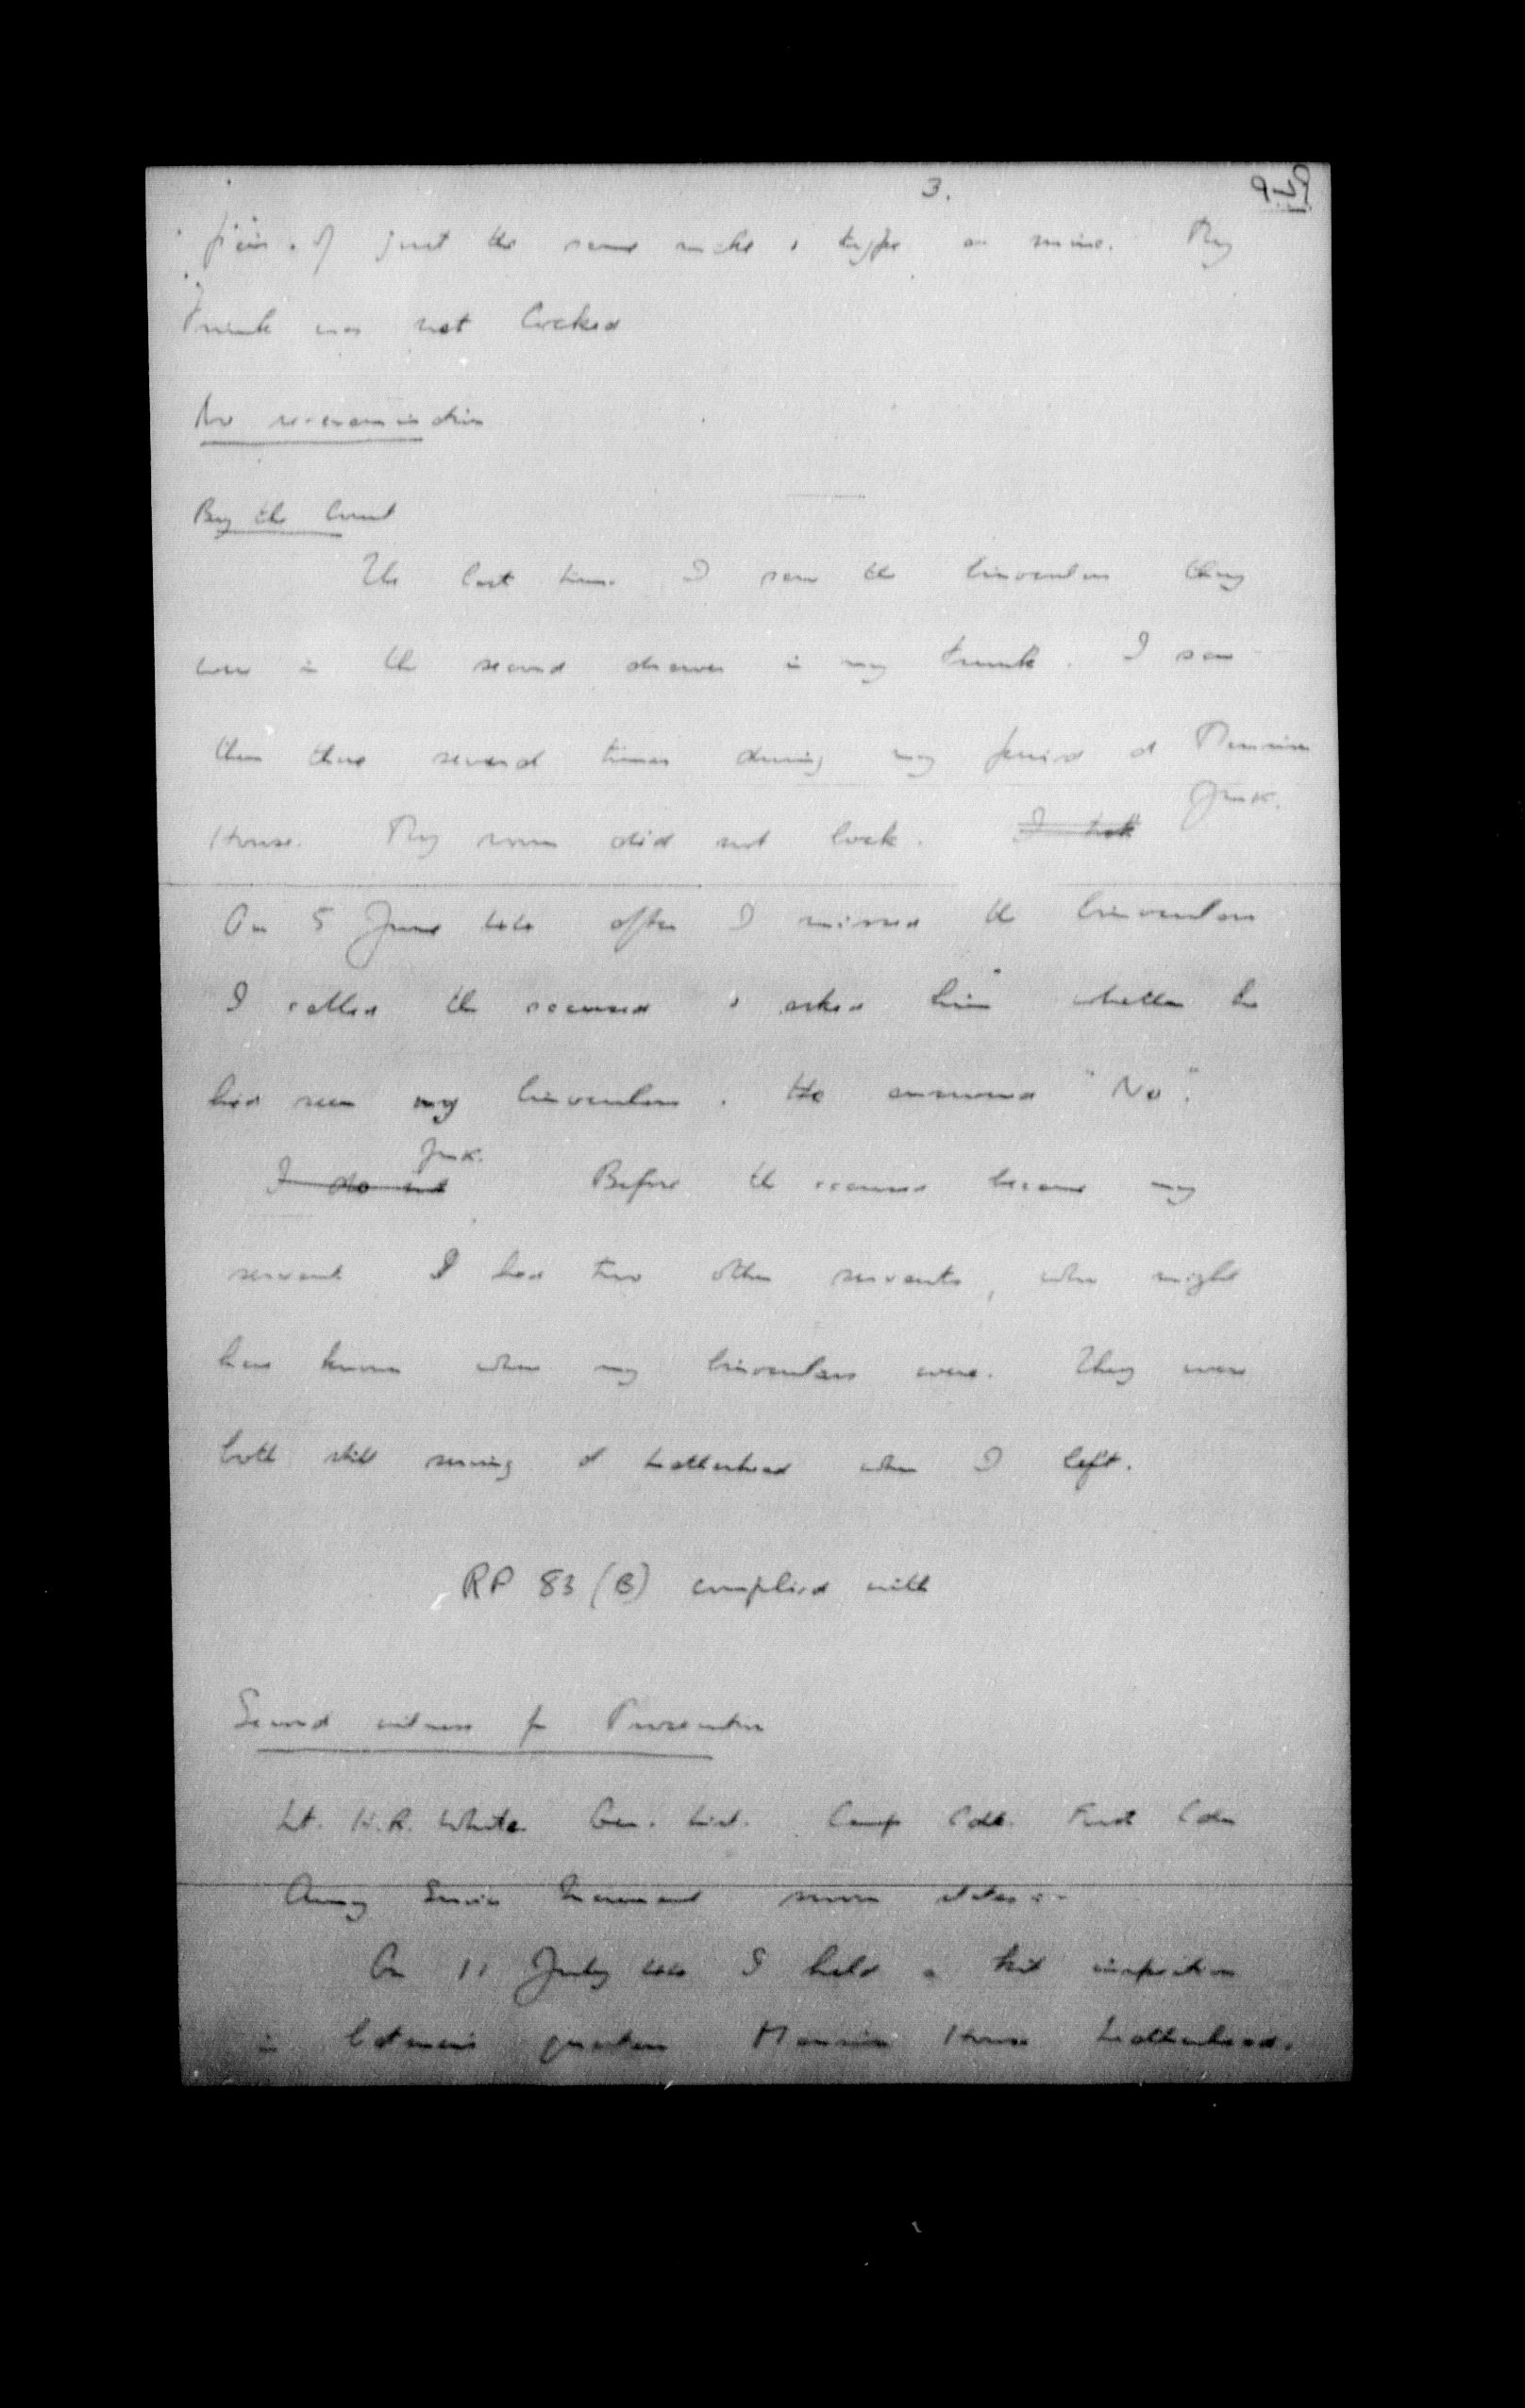 3.
pair of just the same make & type as mine. My
trunk was not locked
No re-examination
By the Court
The last time I saw the binoculars they
were in the second drawer in my trunk. I saw
them there several times during my period at Mansion
House. My room did not lock. I took
On 5 June 44 after I missed the binoculars
I called the accused & asked him whether he
had seen my binoculars. He answered "No".
I do not Before the accused became my
servant I had two other servants, who might
have known where my binoculars were. They were
both still serving at Leatherhead when I left.
RP 83 (B) complied with
Second witness for Prosecution
Lt. H.R. White Gen. List. Camp Cdt. First Cdn
Army Service Increment sworn states:-
On 11 July 44 I held a kit inspection
in batmen's quarters Mansion House Leatherhead.